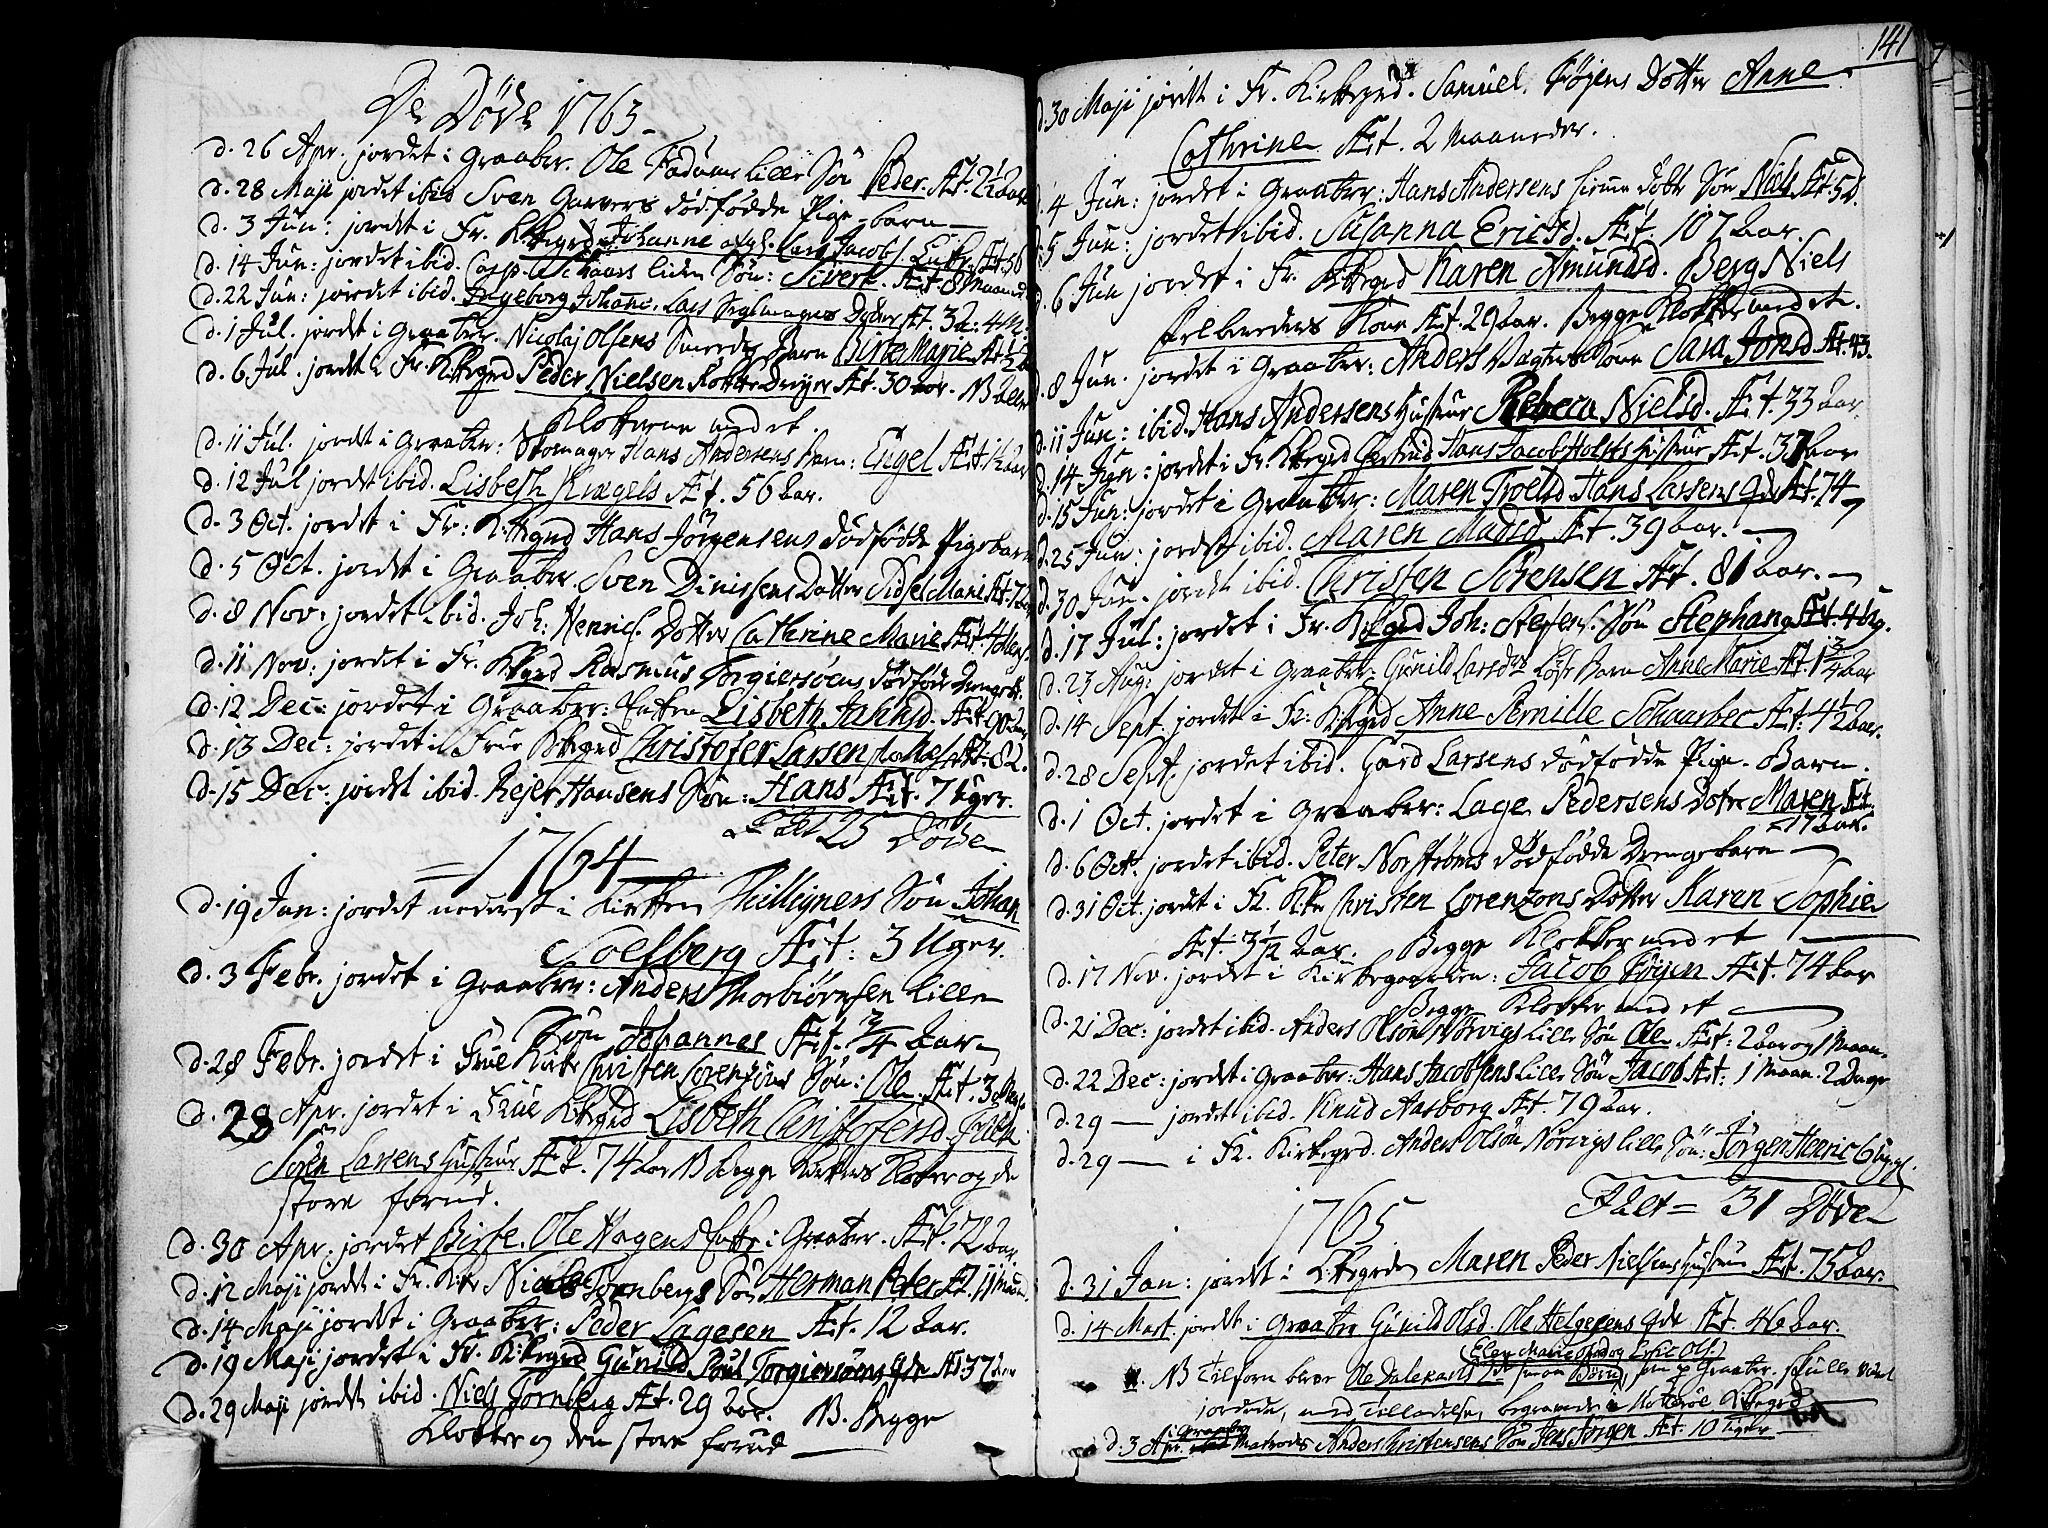 De Døde 1763
d. 26 Apr. jordet i Graabr. Ole Fadums lille Søn Peder. Æt. 2½ Aar
d. 28 Maji jordet ibid Sven Garvers dødfødde Pige-barn
d. 3 Jun: jordet i Fr. Kirkegrd Johanne Lars Jacobs. Enke. Æt. 56
d. 14 Jun: jordet ibid. Casp. Schaars liden Søn: Sivert. Æt. 8 Maaned
d. 22 Jun: jordet ibid. Ingeborg Johanne. Lars Seglmagers Dotter Æt. 3 A: 4 M:
d. 1 Jul. jordet i Graabr. Nicolaj Olsens Smeds Barn Birte Marie Æt. ½ A
d. 6 Jul. jordet i Fr. Kirkegrd Peder Nielsen Æt. 30 Aar. NB alle
Klokkerne med et.
d. 11 Jul. jordet i Graabr: Skomager Hans Andersens barn: Engel Æt. 1 Aar
d. 12 Jul jordet ibid. Lisbeth Kragels Æt. 56 Aar.
d. 3 Oct. jordet i Fr: Kirkegrd Hans Jörgensens dødfødde Pigebarn
d. 5 Oct. jordet i Graabr. Sven Dinissens Datter Sidsel Marie Æt. 7 Aar
d. 8 Nov: jordet ibid. Joh: Henrichs. Dotter Cathrine Marie Æt. 4
d. 11 Nov: jordet i Fr. Kirkegrd Rasmus Torgiersöens dødfødde Drengeb.
d. 12 Dec: jordet i Graabr: Enken Lisbeth Jahnsd. Æt. 90 Aar
d. 13 Dec: jordet i Frue Kirkegrd Christofer Larsen Æt: 82.
d. 15 Dec: jordet ibid. Rejer Hansens Søn: Hans Æt. 7 Uger.
= Er Alt 25 Døde
= 1764
d. 19 Jan: jordet nederst i Kirken Søn Johan
Soelberg Æt: 3 Uger.
d. 3 Febr. jordet i Graabr: Anders Thorbiörnsen lille
Søn Johannes Æt. ¾ Aar
d. 28 Febr. jordet i Frue Kirke Christen Lorensöns Søn: Ole. Æt. 3
d. 28 Apr. jordet i Frue Kirkegrd Lisbeth Christofersd. Friis
Sören Larsens Hustrue Æt. 74 Aar NB begge Kirkens Klokker og de
store forud.
d. 30 Apr. jordet Birte. Ole Hagens Enke i Graabr. Æt. 72 Aar.
d. 12 Maji jordet i Fr. Kirke Niels Tornbergs Søn Herman Peter Æt. 11 Maan.
d. 14 Maji jordet i Graabr: Peder Lagesen Æt. 12 Aar.
d. 19 Maji jordet i Fr. Kirkegrd Gunild Poul Torgiersöns Qde Æt 37 Aar
d. 29 Maji jordet ibid. Niels Tornberg Æt. 29 Aar. NB. Begge
Klokker og den store forud
141
d. 30 Maji jordet i Fr. Kirkegrd. Samuel Föjens Dotter Anne
Cathrine Æt. 2 Maaneder.
d. 4 Jun: jordet i Graabr: Hans Andersens hiemme döbte Søn Niels Æt. 5 d.
d. 5 Jun: jordet ibid. Susanna Ericsd. Æt. 107 Aar.
d. 6 Jun jordet i Fr. Kirkegrd Karen Amundsd. Berg Niels
Kone Æt. 29 Aar. Begge Klokker med et.
d. 8 Jun. jordet i Graabr: Anders Vægters Kone Sara Jonsd. Æt. 43.
d. 11 Jun: ibid. Hans Andersens Hustrue Rebecca Nielsd. Æt. 33 Aar
d. 14 Jun: jordet i Fr. Kirkegrd Giertrud Hans Jacob Holsts Hustrue Æt. 37 Aar
d. 15 Jun: jordet i Graabr: Maren Troelsd Hans Larsens Qde Æt. 74
d. 25 Jun: jordet ibid. Maren Madsd Æt. 39 Aar.
d. 30 Jun. jordet ibid. Christen Sörensen Æt. 81 Aar.
d. 17 Jul: jordet i Fr. Kirkegrd Joh: Stefens. Søn Stephan Æt. 4 Ug.
d. 23 Aug: jordet i Graabr: Gunild Larsd Barn Anne Marie Æt. 1¾ Aar
d. 14 Sept. jordet i Fr: Kirkegrd Anne Pernille Schaarbec Æt: 4½ Aar.
d. 28 Sept. jordet ibid. Gord Larsens dødfødde Pige-Barn.
d. 1 Oct. jordet i Graabr: Lage Pedersens Dotter Maren Æt.
= 17 Aar.
d. 6 Oct. jordet ibid. Peter Norströms dødfødde Drengebarn
d. 31 Oct. jordet i Fr. Kirke Christen Lorenzons Dotter Karen Sophie
Æt. 3 1/12 Aar. Begge Klokker med et
d. 17 Nov. jordet i Kirkegaarden: Jacob Föyen Æt. 74 Aar
Begge Klokker med et
d. 21 Dec: jordet ibid. Anders Olsön Nörvigs lille Søn Ole Æt: 2 Aar og 1 Maan.
d. 22 Dec: jordet i Graabr: Hans Jacobsens lille Søn Jacob Æt: 1 Maan. 2 Dage
d. 29 — jordet ibid. Knud Aasborg Æt. 79 Aar.
d. 29 — i Fr. Kirkegrd. Anders Olsön Nörvigs lille Søn: Jörgen Henric 6 Uger.
I alt = 31 Døde
1765
d. 31 Jan: jordet i Kirkegrden Maren Peder Nielsens Hustrue Æt. 75 Aar.
d. 14 Mart. jordet i Graabr Gunild Olsd. Ole Helgesens Qde Æt. 46 Aar.
(Elen Marie Olsd og Eric Ols.)
NB Tilforn blev Ole Dalekarls smaa Börn, som i Graabr. skulle været
jordede, med Tilladelse, begravede i Kirkegrd
i Graabr
d. 3 Apr. Matrods Anders Christensens Søn Jens Jörgen Æt. 10 Uger